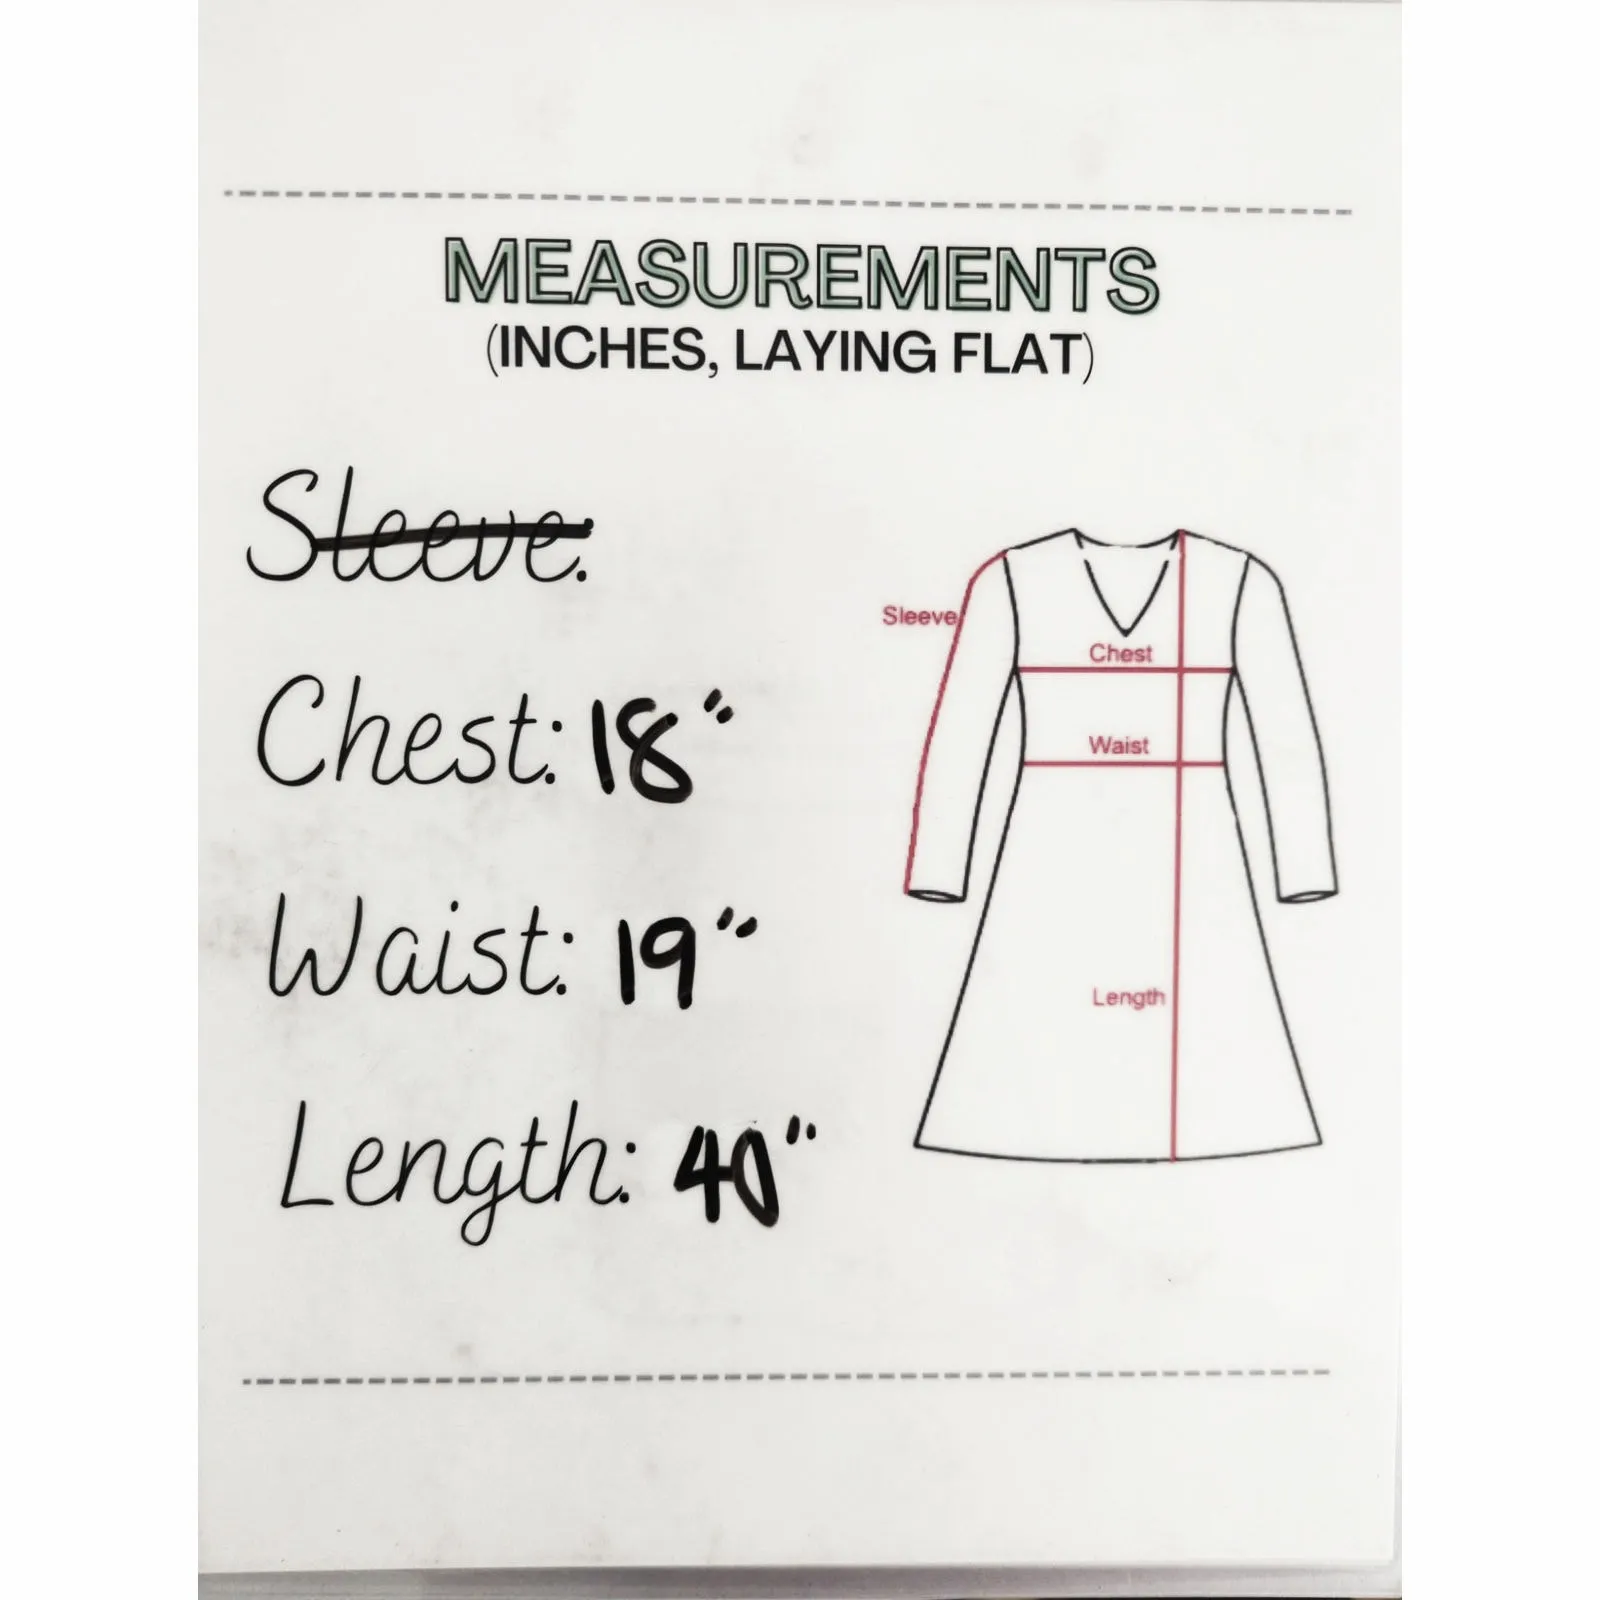 MEASUREMENTS
(INCHES, LAYING FLAT)
Sleeve:
Chest: 18"
Waist: 19"
Length: 40"
Sleeve
Chest
Waist
Length